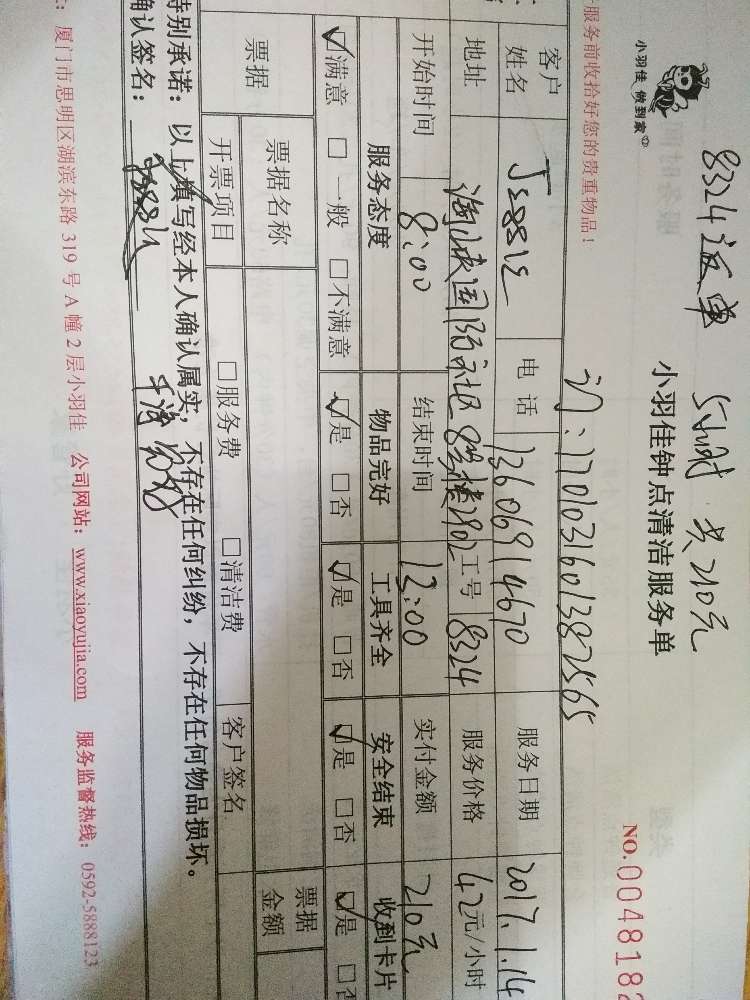 8324返单 5小时 共210元
小羽佳 做到家
小羽佳钟点清洁服务单
NO.0048182
服务前收拾好您的贵重物品！
1701031601382565
客户姓名 Jessie 电话 13606914670 服务日期 2017.1.14
地址 社区8号楼2902 工号 8324 服务价格 42元/小时
开始时间 8:00 结束时间 13:00 实付金额 210元
服务态度 物品完好 工具齐全 安全结束 收到卡片
☑满意 □一般 □不满意 ☑是 □否 ☑是 □否 ☑是 □否 ☑是 □否
票据 票据名称 票据金额
开票项目 □服务费 □清洁费 客户签名
特别承诺：以上填写经本人确认属实，不存在任何纠纷，不存在任何物品损坏。
确认签名：
厦门市思明区湖滨东路319号A幢2层小羽佳 公司网站：www.xiaoyujia.com 服务监督热线：0592-5888123